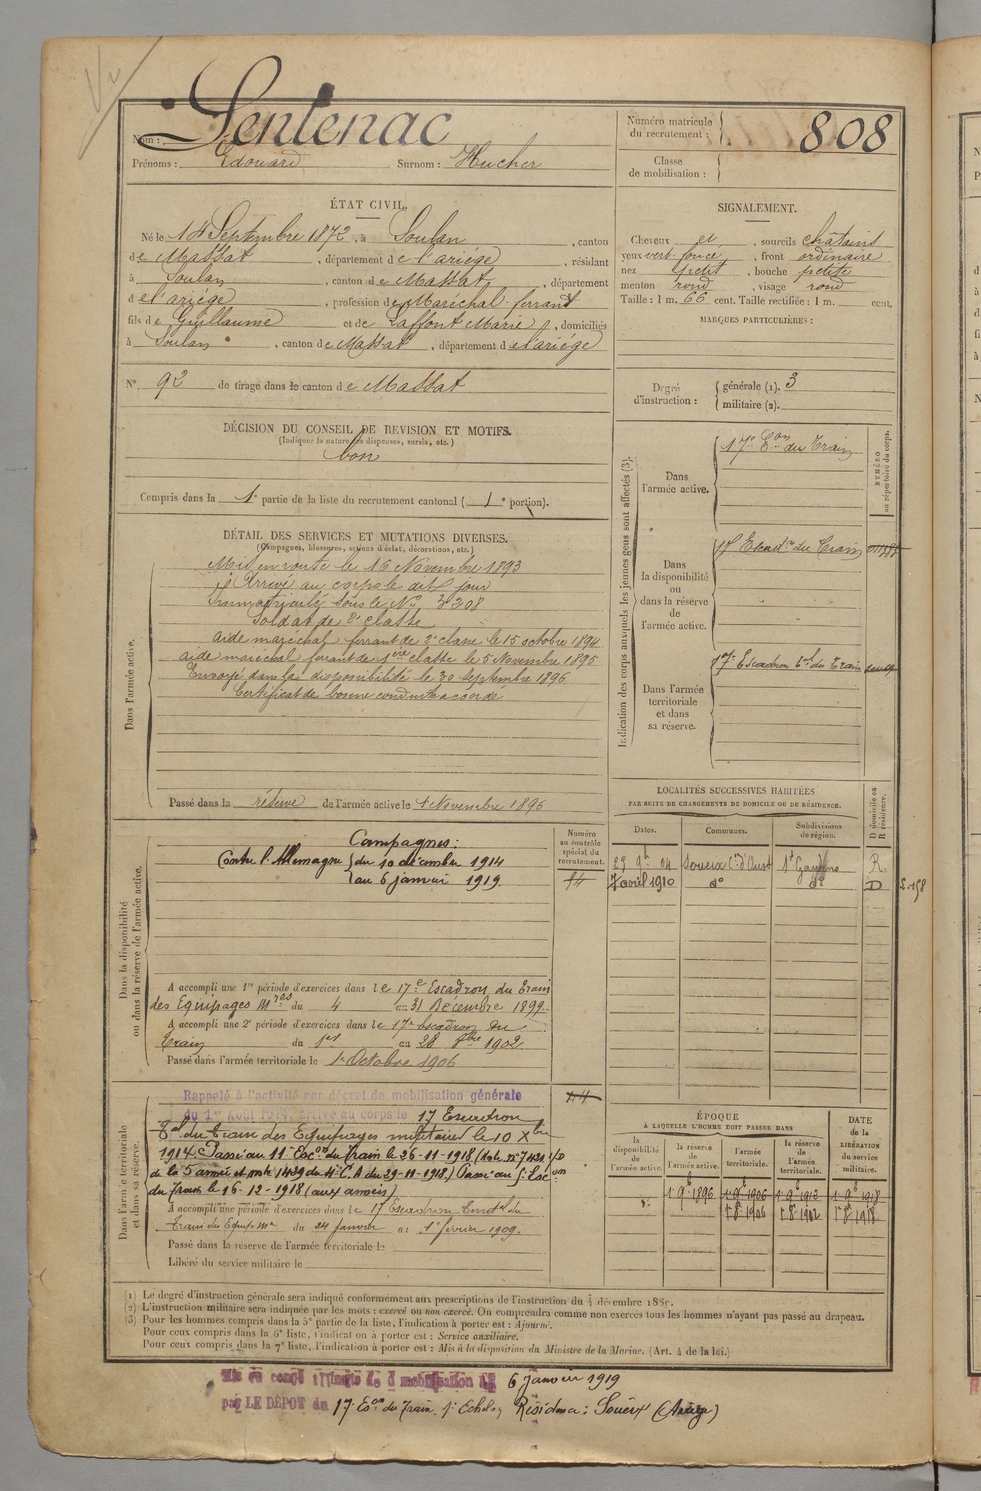 Nom : Sentenac
Prénoms : Edouard Surnom : Hucher
Numéro matricule du recrutement : 808
Classe de mobilisation :
ÉTAT CIVIL.
Né le 14 Septembre 1872, à Soulan, canton
de Massat, département de l'ariége, résidant
à Soulan, canton de Massat, département
de l'ariége, profession de Maréchal ferrant
fils de Guillaume et de Laffont Marie, domiciliés
à Soulan, canton de Massat, département de l'ariége
N° 92 de tirage dans le canton de Massat
SIGNALEMENT.
Cheveux et, sourcils châtains
yeux vert foncé, front ordinaire
nez petit, bouche petite
menton rond, visage rond
Taille : 1 m. 66 cent. Taille rectifiée : 1 m. cent.
MARQUES PARTICULIÈRES :
Degré d'instruction :
générale (1). 3
militaire (2).
DÉCISION DU CONSEIL DE REVISION ET MOTIFS.
(Indiquer la nature des dispenses, sursis, etc.)
bon
Compris dans la 1e partie de la liste du recrutement cantonal (1e portion).
DÉTAIL DES SERVICES ET MUTATIONS DIVERSES.
(Campagnes, blessures, actions d'éclat, décorations, etc.)
Dans l'armée active.
Mis en route le 16 Novembre 1893
Arrivé au corps le dit jour
Immatriculé sous le N° 3208
Soldat de 2e classe
aide maréchal ferrant de 2e classe le 15 octobre 1894
aide maréchal ferrant de 1ère classe le 5 Novembre 1895
Envoyé dans la disponibilité le 30 Septembre 1896
Certificat de bonne conduite accordé
Passé dans la réserve de l'armée active le 1 Novembre 1896
Indication des corps auxquels les jeunes gens sont affectés (3).
NUMÉRO au répertoire du corps.
Dans l'armée active.
17e Eon du Train
Dans la disponibilité ou dans la réserve de l'armée active.
17 Escadon du Train
Dans l'armée territoriale et dans sa réserve.
17e Escadron tal du Train
LOCALITÉS SUCCESSIVES HABITÉES
PAR SUITE DE CHANGEMENTS DE DOMICILE OU DE RÉSIDENCE.
Dates. Communes. Subdivisions de région. D domicile ou R résidence.
29 9b 04 Soueix Con d'Oust St Gaudens R
7 avril 1910 do do D
Dans la disponibilité ou dans la réserve de l'armée active.
Numéro au contrôle spécial du recrutement.
Campagnes :
Contre l'Allemagne du 10 décembre 1914
au 6 janvier 1919
A accompli une 1re période d'exercices dans le 17e Escadron du Train
des Equipages Mres du 4 au 31 Décembre 1899.
A accompli une 2e période d'exercices dans le 17e Escadron du
Train du 1er au 28 8bre 1902
Passé dans l'armée territoriale le 1er Octobre 1906
Dans l'armée territoriale et dans sa réserve.
Rappelé à l'activité par décret de mobilisation générale
du 1er Août 1914. Arrivé au corps le 17 Escadron
Tal du Train des Equipages militaires le 10 Xbre
1914. Passé au 11e Escon du train le 26-11-1918 (note n° 7421
de la 5 armée et note 1439 du 4e C.A du 29-11-1918) Passé au
du Train le 16-12-1918 (aux armées)
A accompli une période d'exercices dans le 17 Escadron Territal du
Train des Equip Mre du 24 Janvier au 1er février 1909.
Passé dans la réserve de l'armée territoriale le
Libéré du service militaire le
ÉPOQUE
À LAQUELLE L'HOMME DOIT PASSER DANS
la disponibilité de l'armée active. la réserve de l'armée active. l'armée territoriale. la réserve de l'armée territoriale. DATE de la LIBÉRATION du service militaire.
1 9b 1896 1 9b 1906 1 9b 1912 1 9b 1918
1 8b 1906 1 8b 1912 1 8b 1918
(1) Le degré d'instruction générale sera indiqué conformément aux prescriptions de l'instruction du 4 décembre 1889.
(2) L'instruction militaire sera indiquée par les mots : exercé ou non exercé. On comprendra comme non exercés tous les hommes n'ayant pas passé au drapeau.
(3) Pour les hommes compris dans la 5e partie de la liste, l'indication à porter est : Ajourné.
Pour ceux compris dans la 6e liste, l'indication à porter est : Service auxiliaire.
Pour ceux compris dans la 7e liste, l'indication à porter est : Mis à la disposition du Ministre de la Marine. (Art. 4 de la loi.)
Mis en congé illimité de démobilisation LE 6 Janvier 1919
par LE DÉPOT du 17e Eson du Train 1e Echelon, Résidence : Soueix (Ariège)